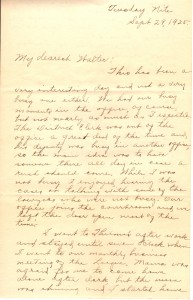 Tuesday Nite
Sept 29, 1925
My dearest Walter:
This has been a
very interesting day and not a very
busy one either. We had one busy
moments in the office, of course,
but not nearly as much as I expected.
The District Clerk was out of the
office a great deal of the time and
his deputy was busy in another office
so the main idea was to have
someone there all day in case a
rush should come. While I was
not busy I enjoyed hearing the
cases or talking with some of the
lawyers who were not busy. Our
office joins the courtroom and we
kept the door open most of the
time.
I went to Thelma's after work
and stayed until seven o'clock when
I went to our monthly business
meeting of the League. Mama was
afraid for me to come home
alone after dark but the moon
was shining and I started home